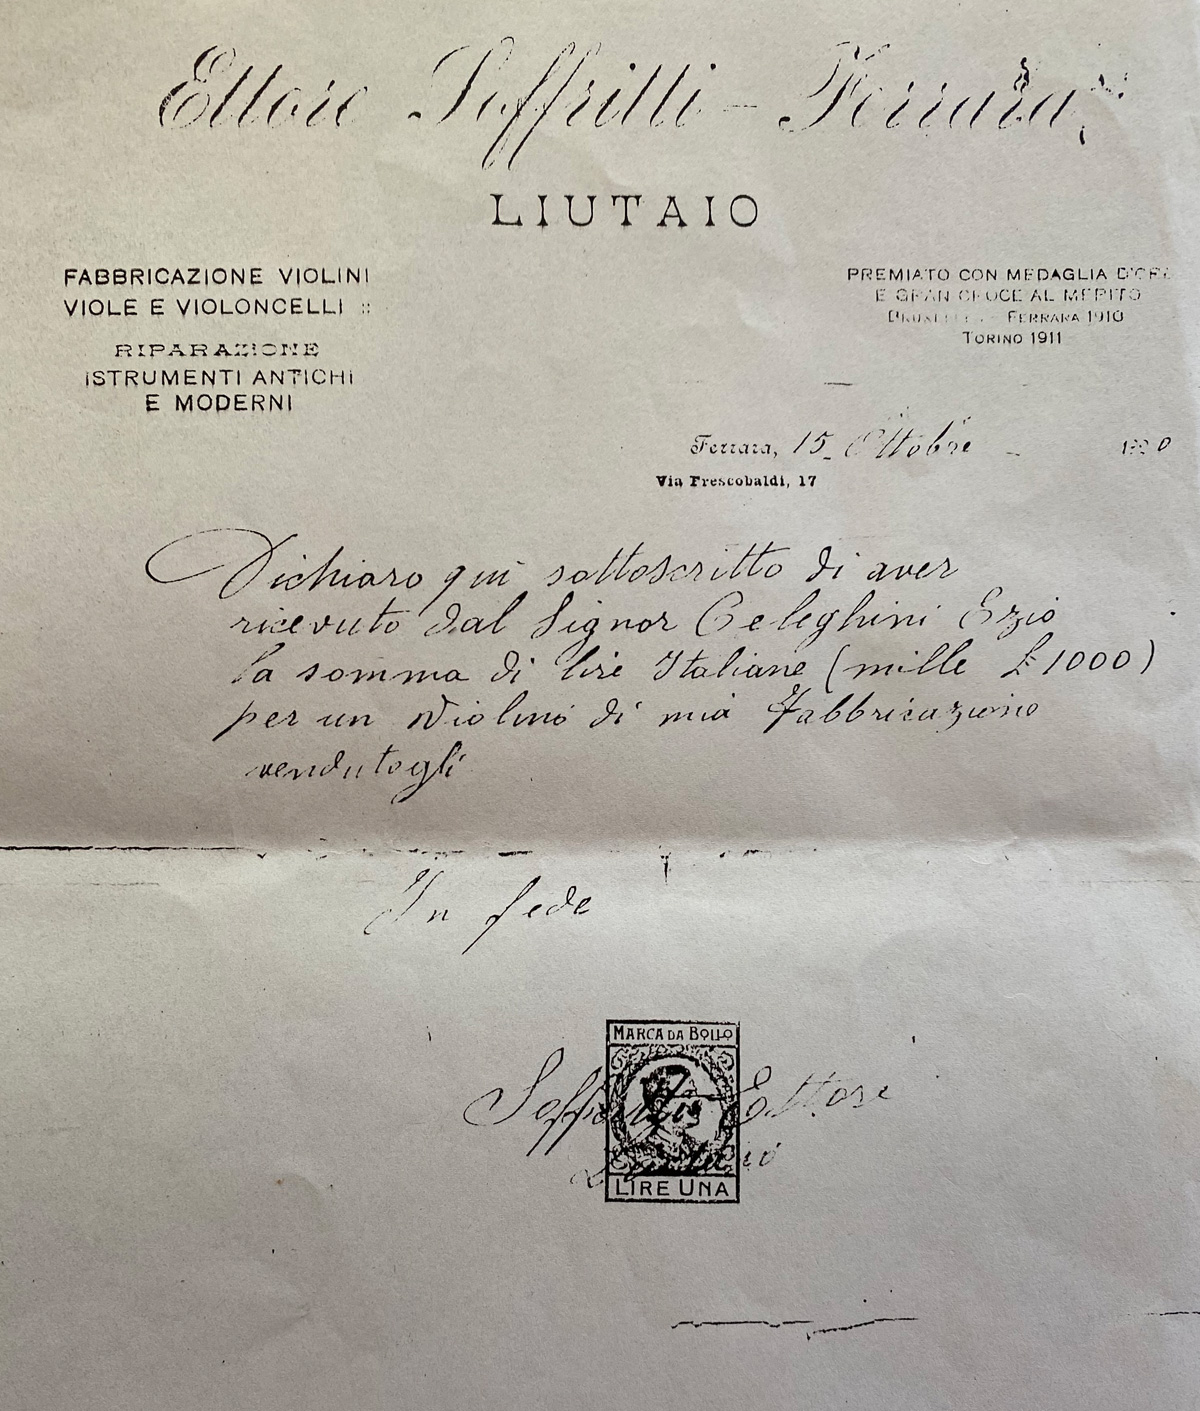 Ettore Soffritti - Ferrara
LIUTAIO
FABBRICAZIONE VIOLINI
VIOLE E VIOLONCELLI
RIPARAZIONE
ISTRUMENTI ANTICHI
E MODERNI
PREMIATO CON MEDAGLIA D'ORO
E GRAN CROCE AL MERITO
BRUXELLES - FERRARA 1910
TORINO 1911
Ferrara, 15 Ottobre 1920
Via Frescobaldi, 17
Dichiaro qui sottoscritto di aver
ricevuto dal Signor Celeghini Ezio
la somma di lire Italiane (mille £ 1000)
per un Violino di mia Fabbricazione
vendutogli
In fede
MARCA DA BOLLO
Soffritti Ettore
Liutaio
LIRE UNA